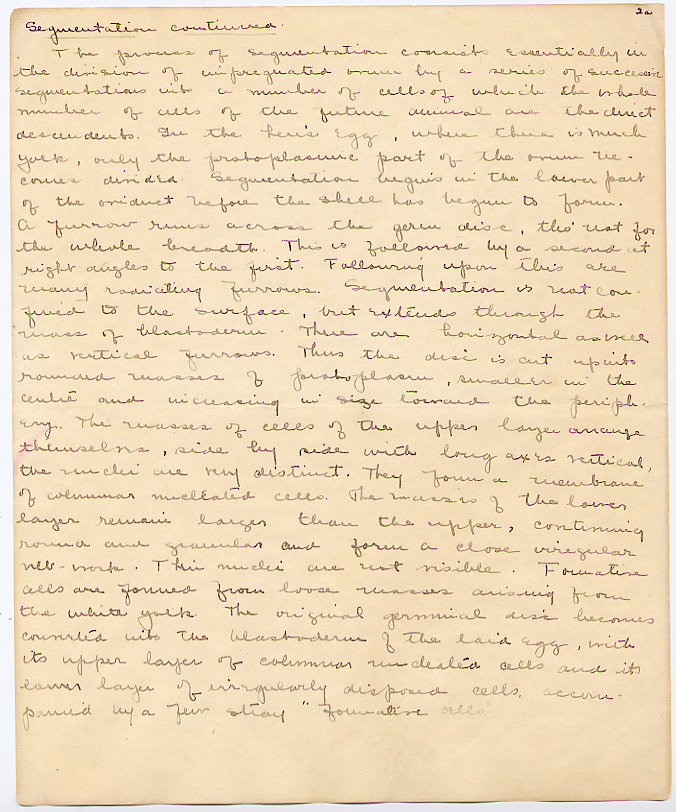 2a
Segmentation continued.
The process of segmentation consists essentially in
the division of impregnated ovum by a series of successive
segmentations into a number of cells of which the whole
number of cells of the future animal are the direct
descendents. In the hen's egg, where there is much
yolk, only the protoplasmic part of the ovum be-
comes divided. Segmentation begins in the lower part
of the oviduct before the shell has begun to form.
A furrow runs across the germ disc, tho' not for
the whole breadth. This is followed by a second at
right angles to the first. Following upon this are
many radiating furrows. Segmentation is not con-
fined to the surface, but extends through the
mass of blastoderm. There are horizontal as well
as vertical furrows. Thus the disc is cut up into
rounded masses of protoplasm, smaller in the
centre and increasing in size toward the periph-
ery. The masses of cells of the upper layer arrange
themselves, side by side with long axes vertical,
the nuclei are very distinct. They form a membrane
of columnar nucleated cells. The masses of the lower
layer remain larger than the upper, continuing
round and granular and form a close irregular
net-work. Their nuclei are not visible. Formative
cells are formed from loose masses arising from
the white yolk. The original germinal disc becomes
converted into the blastoderm of the laid egg, with
its upper layer of columnar nucleated cells and its
lower layer of irregularly disposed cells, accom-
panied by a few stray "formative cells"